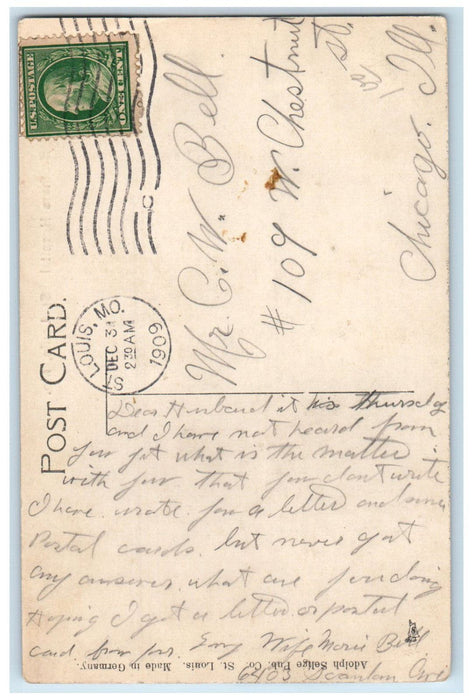 U.S. POSTAGE
ONE CENT
ST. LOUIS, MO.
DEC 31
2 30 AM
1909
C
POST CARD.
Mr. C. W. Bell.
# 109 W. Chestnut
St.
Chicago. Ill.
Dear Husband it is Thursday
and I have not heard from
you yet what is the matter
with you that you dont write
I have wrote you a letter and some
Postal cards. but never got
any answer what are you doing
Hoping I get a letter or postal
card from you. Your Wife Marie Bell
6403 Scanlan Ave
Adolph Selige Pub. Co. St. Louis. Made in Germany.